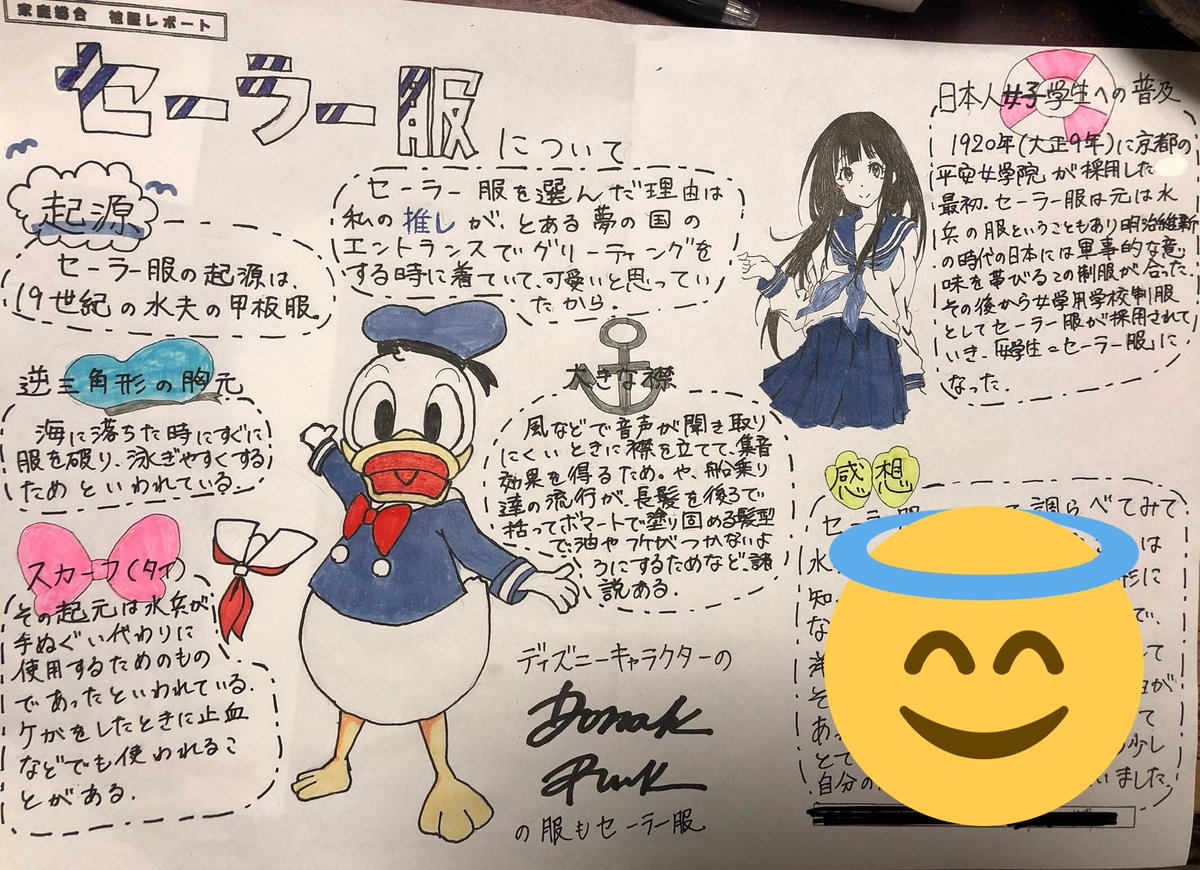 家庭総合 被服レポート
セーラー服について
起源
セーラー服の起源は、
19世紀の水夫の甲板服
逆三角形の胸元
海に落ちた時にすぐに
服を破り、泳ぎやすくする
ためといわれている.
スカーフ(タイ)
その起元は水兵が
手ぬぐい代わりに
使用するためのもの
であったといわれている.
ケガをしたときに止血
などでも使われるこ
とがある.
セーラー服を選んだ理由は
私の推しが、とある夢の国の
エントランスでグリーティングを
する時に着ていて、可愛いと思ってい
たから.
大きな襟
風などで音声が聞き取り
にくいときに襟を立てて、集音
効果を得るため。や、船乗り
達の流行が、長髪を後ろで
括ってポマードで塗り固める髪型
で、油やフケがつかないよ
うにするためなど、諸
説ある.
ディズニーキャラクターの
Donald
Duck
の服もセーラー服
日本人女子学生への普及
1920年(大正9年)に京都の
平安女学院が採用した
最初.セーラー服は元は水
兵の服ということもあり明治維新
の時代の日本には軍事的な意
味を帯びるこの制服が合った.
その後から女学用学校制服
としてセーラー服が採用されて
いき、「女学生=セーラー服」に
なった.
感想
セーラー服 調らべてみて
水 は
知 形に
な で、
そ が
あっ て
とて 少し
自分の いました.